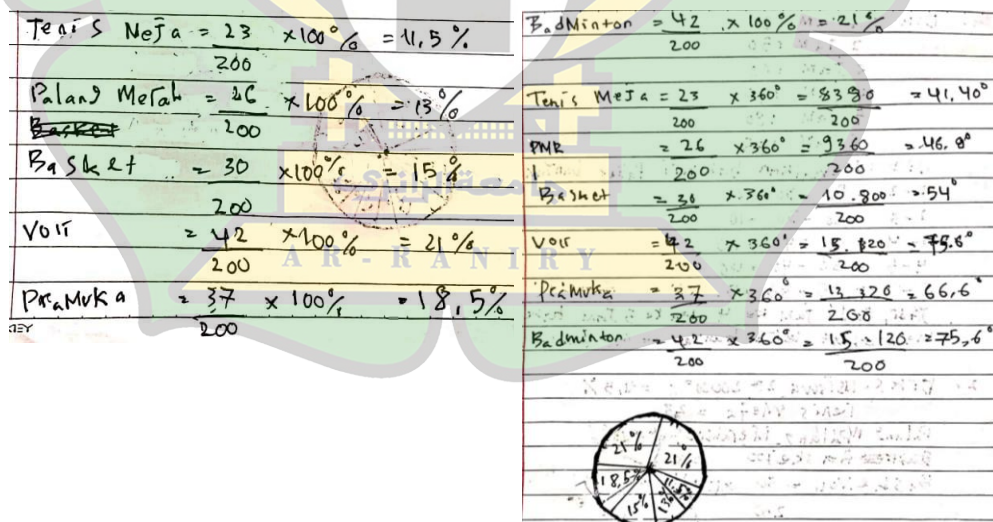 Tenis Meja = 23/200 × 100% = 11,5%
Palang Merah = 26/200 × 100% = 13%
Basket
Basket = 30/200 × 100% = 15%
Voli = 42/200 × 100% = 21%
Pramuka = 37/200 × 100% = 18,5%
جامعة الرانيري
AR-RANIRY
BadMinton = 42/200 × 100% = 21%
Tenis Meja = 23/200 × 360° = 8380/200 = 41,40°
PMR = 26/200 × 360° = 9360/200 = 46,8°
Basket = 30/200 × 360° = 10.800/200 = 54°
Voli = 42/200 × 360° = 15.120/200 = 75,6°
Pramuka = 37/200 × 360° = 13.320/200 = 66,6°
Badminton = 42/200 × 360° = 15.120/200 = 75,6°
21% 21%
18,5% 11,5%
15% 13%